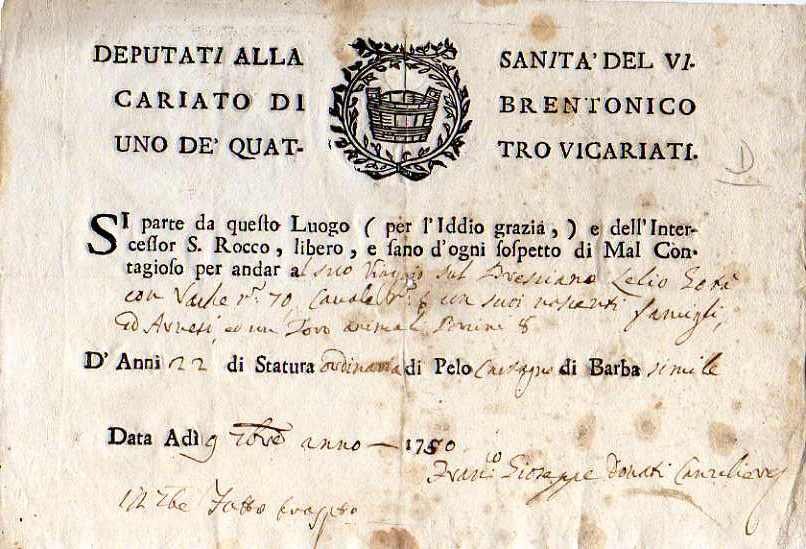 DEPUTATI ALLA SANITA' DEL VI-
CARIATO DI BRENTONICO
UNO DE' QUAT- TRO VICARIATI.
D
SI parte da queſto Luogo ( per l'Iddio grazia, ) e dell'Inter-
ceſſor S. Rocco, libero, e ſano d'ogni ſoſpetto di Mal Con-
tagioſo per andar al suo Viaggio sul Bresciano Lelio
con Vache n.º 70, Cavale n.º 6 un suoi famigli,
ed Arnesi, ed un Toro animali Porini 8
D' Anni 22 di Statura ordinaria di Pelo Castagno di Barba simile
Data Adì 9 anno 1750
Fran.co Gioseppe Donati Canceliere